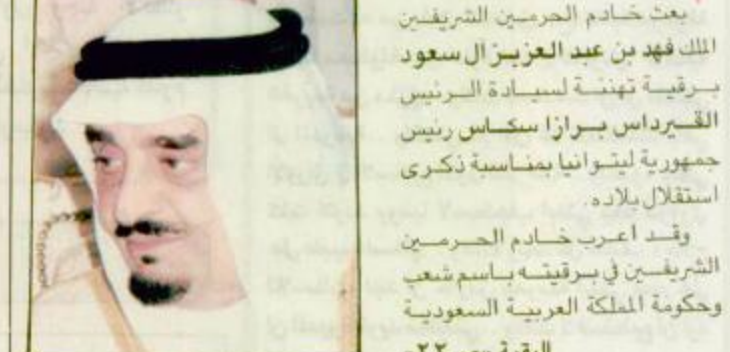 بعث خادم الحرمين الشريفين
الملك فهد بن عبد العزيز آل سعود
برقية تهنئة لسيادة الرئيس
القيرداس برازا سكاس رئيس
جمهورية ليتوانيا بمناسبة ذكرى
استقلال بلاده.
وقد اعرب خادم الحرمين
الشريفين في برقيته باسم شعب
وحكومة المملكة العربية السعودية
البقية ص ٢٢-